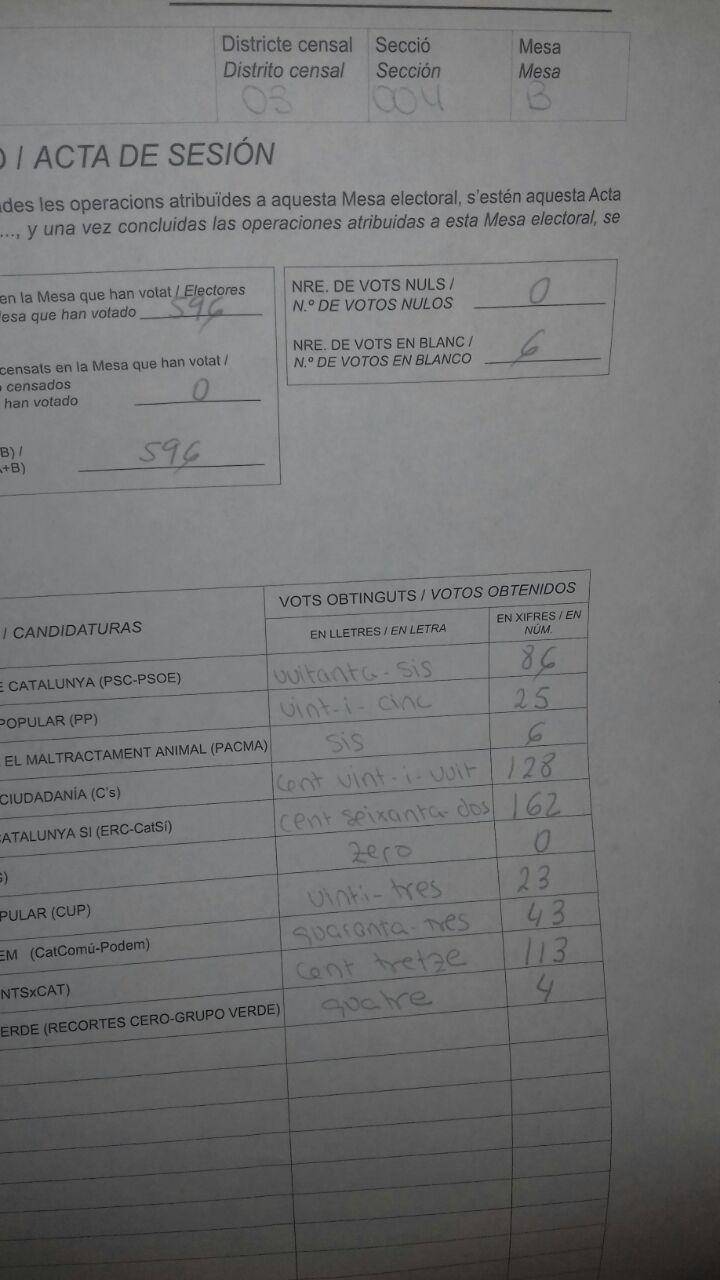 Districte censal Secció Mesa
Distrito censal Sección Mesa
03 004 B
/ ACTA DE SESIÓN
les operacions atribuïdes a aquesta Mesa electoral, s'estén aquesta Acta
..., y una vez concluidas las operaciones atribuidas a esta Mesa electoral, se
en la Mesa que han votat / Electores
Mesa que han votado 596
censats en la Mesa que han votat /
censados
han votado 0
B) /
+B) 596
NRE. DE VOTS NULS /
N.º DE VOTOS NULOS 0
NRE. DE VOTS EN BLANC /
N.º DE VOTOS EN BLANCO 6
/ CANDIDATURAS VOTS OBTINGUTS / VOTOS OBTENIDOS
EN LLETRES / EN LETRA EN XIFRES / EN NÚM.
E CATALUNYA (PSC-PSOE) vuitanta-sis 86
POPULAR (PP) vint-i-cinc 25
EL MALTRACTAMENT ANIMAL (PACMA) sis 6
CIUDADANÍA (C's) cent vint-i-vuit 128
CATALUNYA SI (ERC-CatSí) cent seixanta-dos 162
) zero 0
PULAR (CUP) vinti-tres 23
EM (CatComú-Podem) quaranta-tres 43
NTSxCAT) cent tretze 113
ERDE (RECORTES CERO-GRUPO VERDE) quatre 4